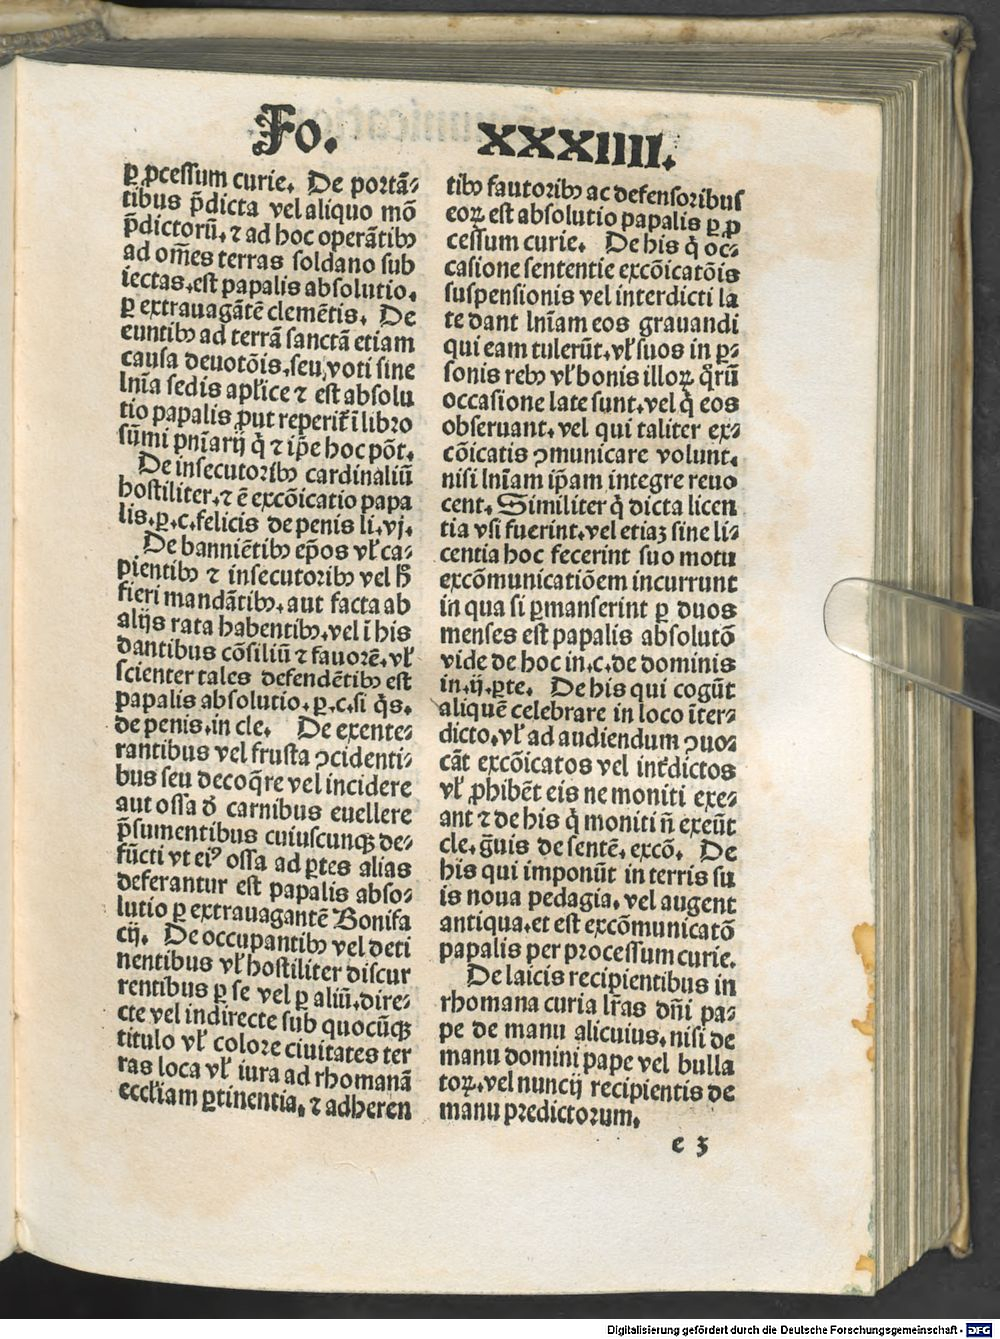 Fo. XXXIIII.
ꝑ ꝓcessum curie. De portã⸗
tibus p̃dicta vel aliquo mõ
p̃dictorũ. ⁊ ad hoc operãtibꝰ
ad om̃es terras soldano sub
iectas. est papalis absolutio.
ꝑ extrauagãtẽ clemẽtis. De
euntibꝰ ad terrã sanctã etiam
causa deuotõis. seu voti sine
lnĩa sedis apłice ⁊ est absolu
tio papalis ꝓut reperit̃ ĩ libro
sũmi pnĩarij q̃ ⁊ ip̃e hoc põt.
De insecutoribꝰ cardinaliũ
hostiliter. ⁊ ẽ excõicatio papa
lis. ꝑ. c. felicis de penis li. vj.
De banniẽtibꝰ ep̃os vł ca⸗
pientibꝰ ⁊ insecutoribꝰ vel h̃
fieri mandãtibꝰ. aut facta ab
alijs rata habentibꝰ. vel ĩ his
dantibus cõsiliũ ⁊ fauorẽ. vł
scienter tales defendẽtibꝰ est
papalis absolutio. ꝑ. c. si q̃s.
de penis. in cle. De exente⸗
rantibus vel frusta ꝯcidenti⸗
bus seu decoq̃re vel incidere
aut ossa õ carnibus euellere
p̃sumentibus cuiuscunqꝫ de⸗
fũcti vt eiꝰ ossa ad ꝑtes alias
deferantur est papalis abso⸗
lutio ꝑ extrauagantẽ Bonifa
cij. De occupantibꝰ vel deti
nentibus vł hostiliter discur
rentibus ꝑ se vel ꝑ aliũ. dire⸗
cte vel indirecte sub quocũqꝫ
titulo vł colore ciuitates ter
ras loca vł iura ad rhomanã
eccłiam ꝑtinentia. ⁊ adheren
tibꝰ fautoribꝰ ac defensoribus
eoꝝ est absolutio papalis ꝑ ꝓ
cessum curie. De his q̃ oc⸗
casione sententie excõicatõis
suspensionis vel interdicti la
te dant lnĩam eos grauandi
qui eam tulerũt. vł suos in ꝑ⸗
sonis rebꝰ vł bonis illoꝝ q̃rũ
occasione late sunt. vel q̃ eos
obseruant. vel qui taliter ex⸗
cõicatis ꝯmunicare volunt.
nisi lnĩam ip̃am integre reuo
cent. Similiter q̃ dicta licen
tia vsi fuerint. vel etiaꝫ sine li⸗
centia hoc fecerint suo motu
excõmunicatiõem incurrunt
in qua si ꝑmanserint ꝑ duos
menses est papalis absolutõ
vide de hoc in. c. de dominis
in. ij. ꝑte. De his qui cogũt
aliquẽ celebrare in loco ĩter⸗
dicto. vł ad audiendum ꝯuo⸗
cãt excõicatos vel int̃dictos
vł ꝓhibẽt eis ne moniti exe⸗
ant ⁊ de his q̃ moniti ñ exeũt
cle. g̃uis de sentẽ. excõ. De
his qui imponũt in terris su
is noua pedagia. vel augent
antiqua. et est excõmunicatõ
papalis per processum curie.
De laicis recipientibus in
rhomana curia lr̃as dñi pa⸗
pe de manu alicuius. nisi de
manu domini pape vel bulla
toꝝ. vel nuncij recipientis de
manu predictorum.
e 3
Digitalisierung gefördert durch die Deutsche Forschungsgemeinschaft - DFG